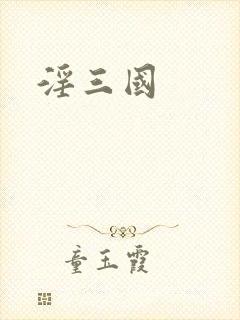 淫三國
童玉霞